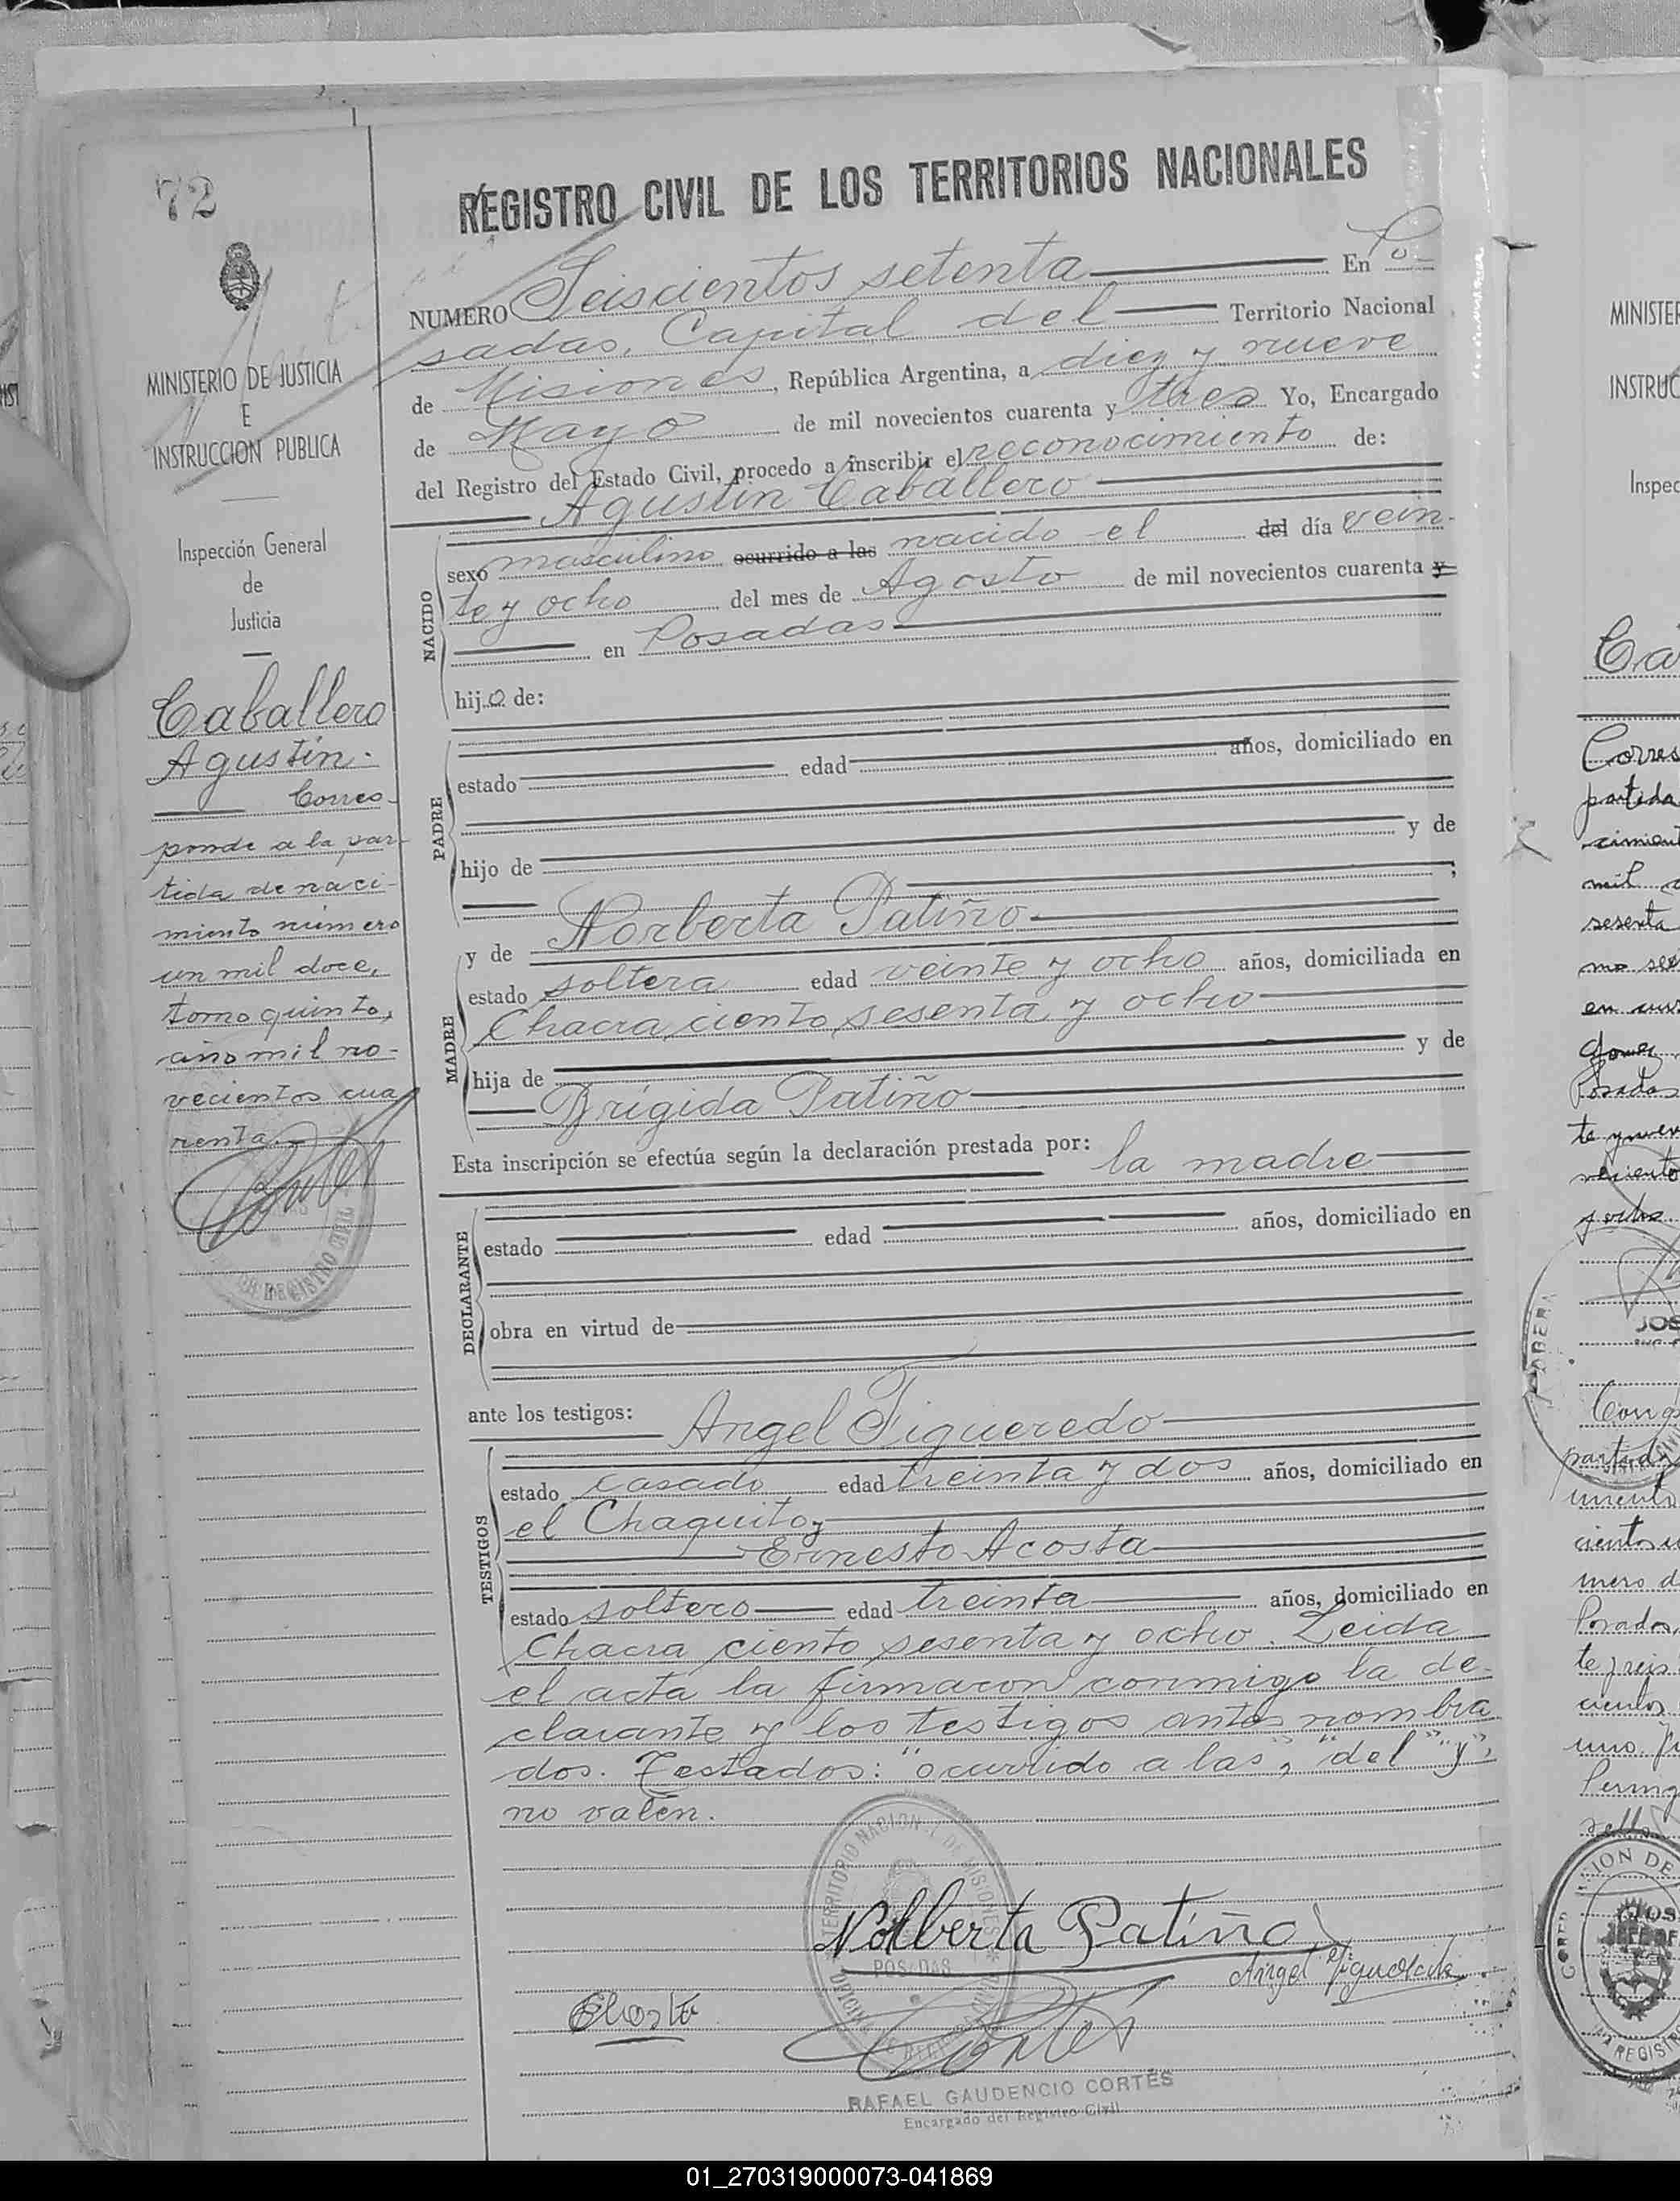 72
MINISTERIO DE JUSTICIA
E
INSTRUCCION PUBLICA
Inspección General
de
Justicia
Caballero
Agustín.
Corres-
ponde a la par-
tida de naci-
miento número
un mil doce,
tomo quinto,
año mil no-
vecientos cua
renta.
REGISTRO CIVIL DE LOS TERRITORIOS NACIONALES
NUMERO Seiscientos setenta En Po-
sadas, Capital del Territorio Nacional
de Misiones, República Argentina, a diez y nueve
de Mayo de mil novecientos cuarenta y tres Yo, Encargado
del Registro del Estado Civil, procedo a inscribir el reconocimiento de:
Agustín Caballero
NACIDO
sexo masculino ocurrido a las nacido el del día vein-
te y ocho del mes de Agosto de mil novecientos cuarenta y
en Posadas
hijo de:
PADRE
estado edad años, domiciliado en
hijo de y de
;
MADRE
y de Norberta Patiño
estado soltera edad veinte y ocho años, domiciliada en
Chacra ciento sesenta y ocho
hija de y de
Brígida Patiño
Esta inscripción se efectúa según la declaración prestada por: la madre
DECLARANTE
estado edad años, domiciliado en
obra en virtud de
ante los testigos: Angel Figueredo
TESTIGOS
estado casado edad treinta y dos años, domiciliado en
el Chaquito y
Ernesto Acosta
estado soltero edad treinta años, domiciliado en
Chacra ciento sesenta y ocho. Leida
el acta la firmaron conmigo la de-
clarante y los testigos antes nombra
dos. Testados: "ocurrido a las", "del" "y",
no valen.
TERRITORIO NACIONAL DE MISIONES
POSADAS
Nolberta Patiño
Angel
EAcosta
RAFAEL GAUDENCIO CORTÉS
Encargado del Registro Civil
MINISTER
INSTRUC
Inspec
Ca
Corres
partida
cimient
mil
sesenta
Posadas
JOS
partida
ciento
mero d
Posadas
01_270319000073-041869